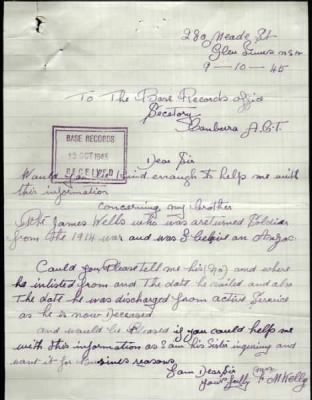 280 Meade St
Glen Innes NSW
9-10-45
To The Base Records
Secetory
Canberra A.C.T.
BASE RECORDS
13 OCT 1945
RECEIVED
Dear Sir
Would you be kind enough to help me with
this information
concerning my Brother
Pte James Wells who was areturned Soldier
from the 1914 war and was I beleive an Anzac
Could you Please tell me his (No) and where
he inlisted from and The date he sailed and also
The date he was discharged from active Service
as he is now Deceased
and would be Pleased if you could help me
with this information as I am his Sister inquiring and
want it for Business reasons
I am Dear Sir
yours
Kelly